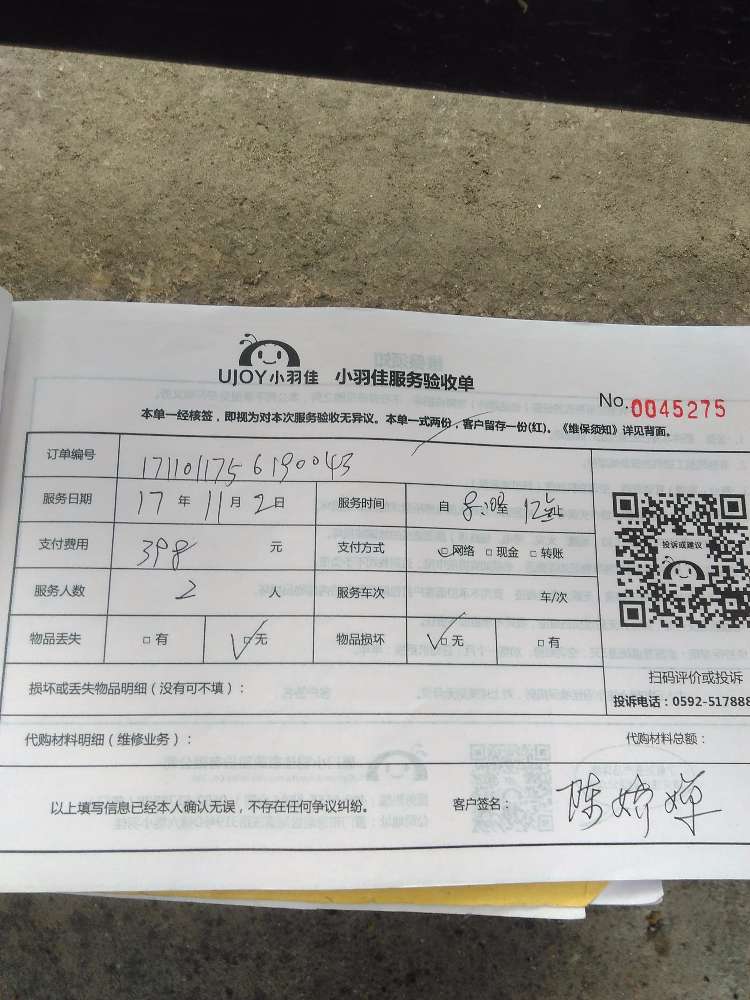 UJOY小羽佳 小羽佳服务验收单
No.0045275
本单一经核签，即视为对本次服务验收无异议。本单一式两份，客户留存一份(红)。《维保须知》详见背面。
订单编号 1711011756190043
服务日期 17 年 11 月 2 日 服务时间 自 8:00 至 12
支付费用 398 元 支付方式 网络 □ 现金 □ 转账
投诉或建议
服务人数 2 人 服务车次 车/次
物品丢失 □ 有 ☑ 无 物品损坏 ☑ 无 □ 有
扫码评价或投诉
损坏或丢失物品明细（没有可不填）：
投诉电话：0592-517888
代购材料明细（维修业务）： 代购材料总额：
以上填写信息已经本人确认无误，不存在任何争议纠纷。 客户签名： 陈娇婵